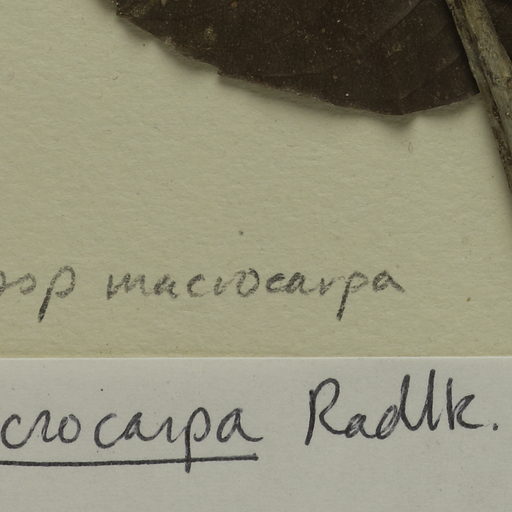 ssp macrocarpa
crocarpa Radlk.